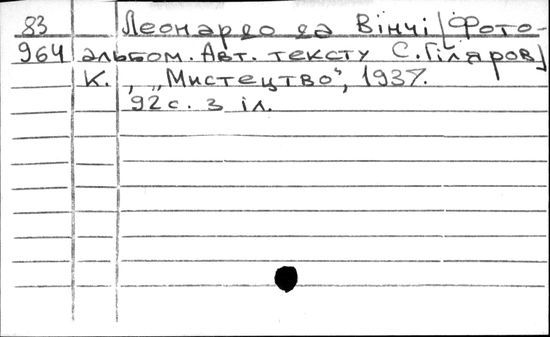 83 Леонардо да Вінчі [Фото-
964 альбом. Авт. тексту С. Гіляров]
К., „Мистецтво", 1937.
92 с. з іл.